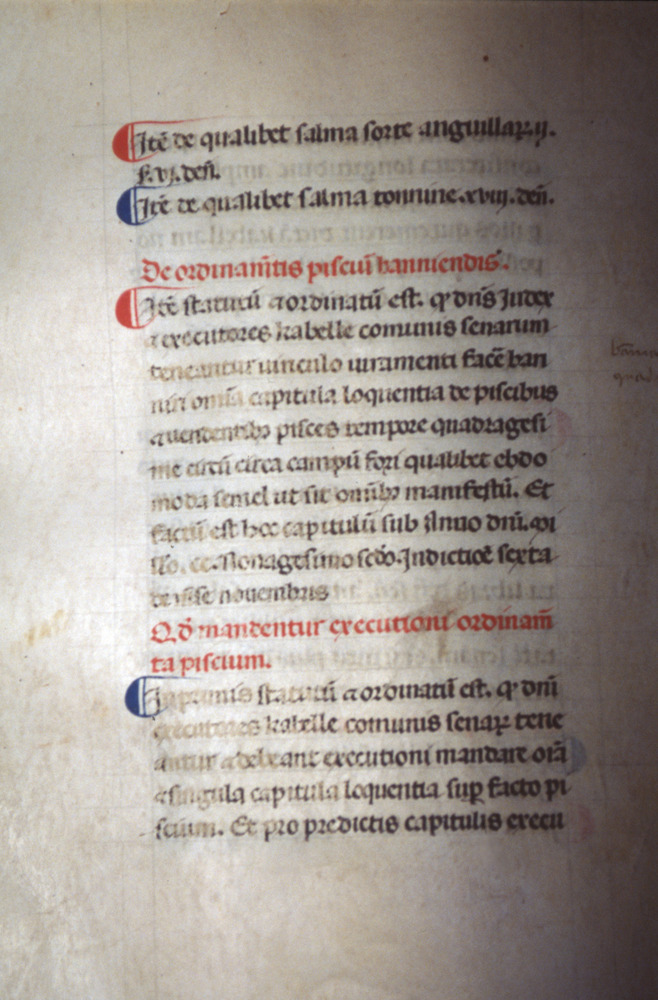 Itē de qualibet salma sorte anguillaꝝ .ij.
s̄. vj. den̄.
Itē de qualibet salma tonnine .xviij. den̄.
De ordinam̄tis pisciū banniendis.
Itē statutū ⁊ ordinatū est. ꝙ dn̄s Judex
⁊ executores kabelle comunis senarum
teneantur uinculo iuramenti facē ban
niri om̄ia capitula loquentia de piscibus
⁊ uendentibꝫ pisces tempore quadragesi
me circū circa campū fori qualibet ebdo
moda semel ut sit om̄ibꝫ manifestū. Et
factū est hoc capitulū sub Anno dn̄i. ꝳi
llo. cc. Nonagesimo scd̄o. Indictiōe sexta
de mense nouembris
Qd̄ mandentur executioni ordinam̄
ta piscium.
Inprimis statutū ⁊ ordinatū est. ꝙ dn̄i
executores kabelle comunis senaꝝ tene
antur ⁊ debeant executioni mandare oīa
⁊ singula capitula loquentia suꝑ facto pi
scium. Et pro predictis capitulis execu